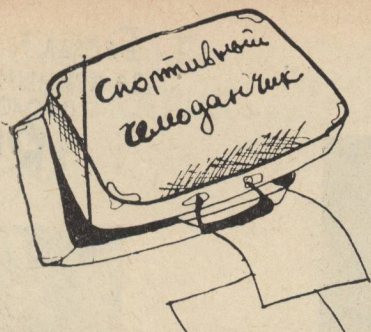 Спортивный
чемоданчик